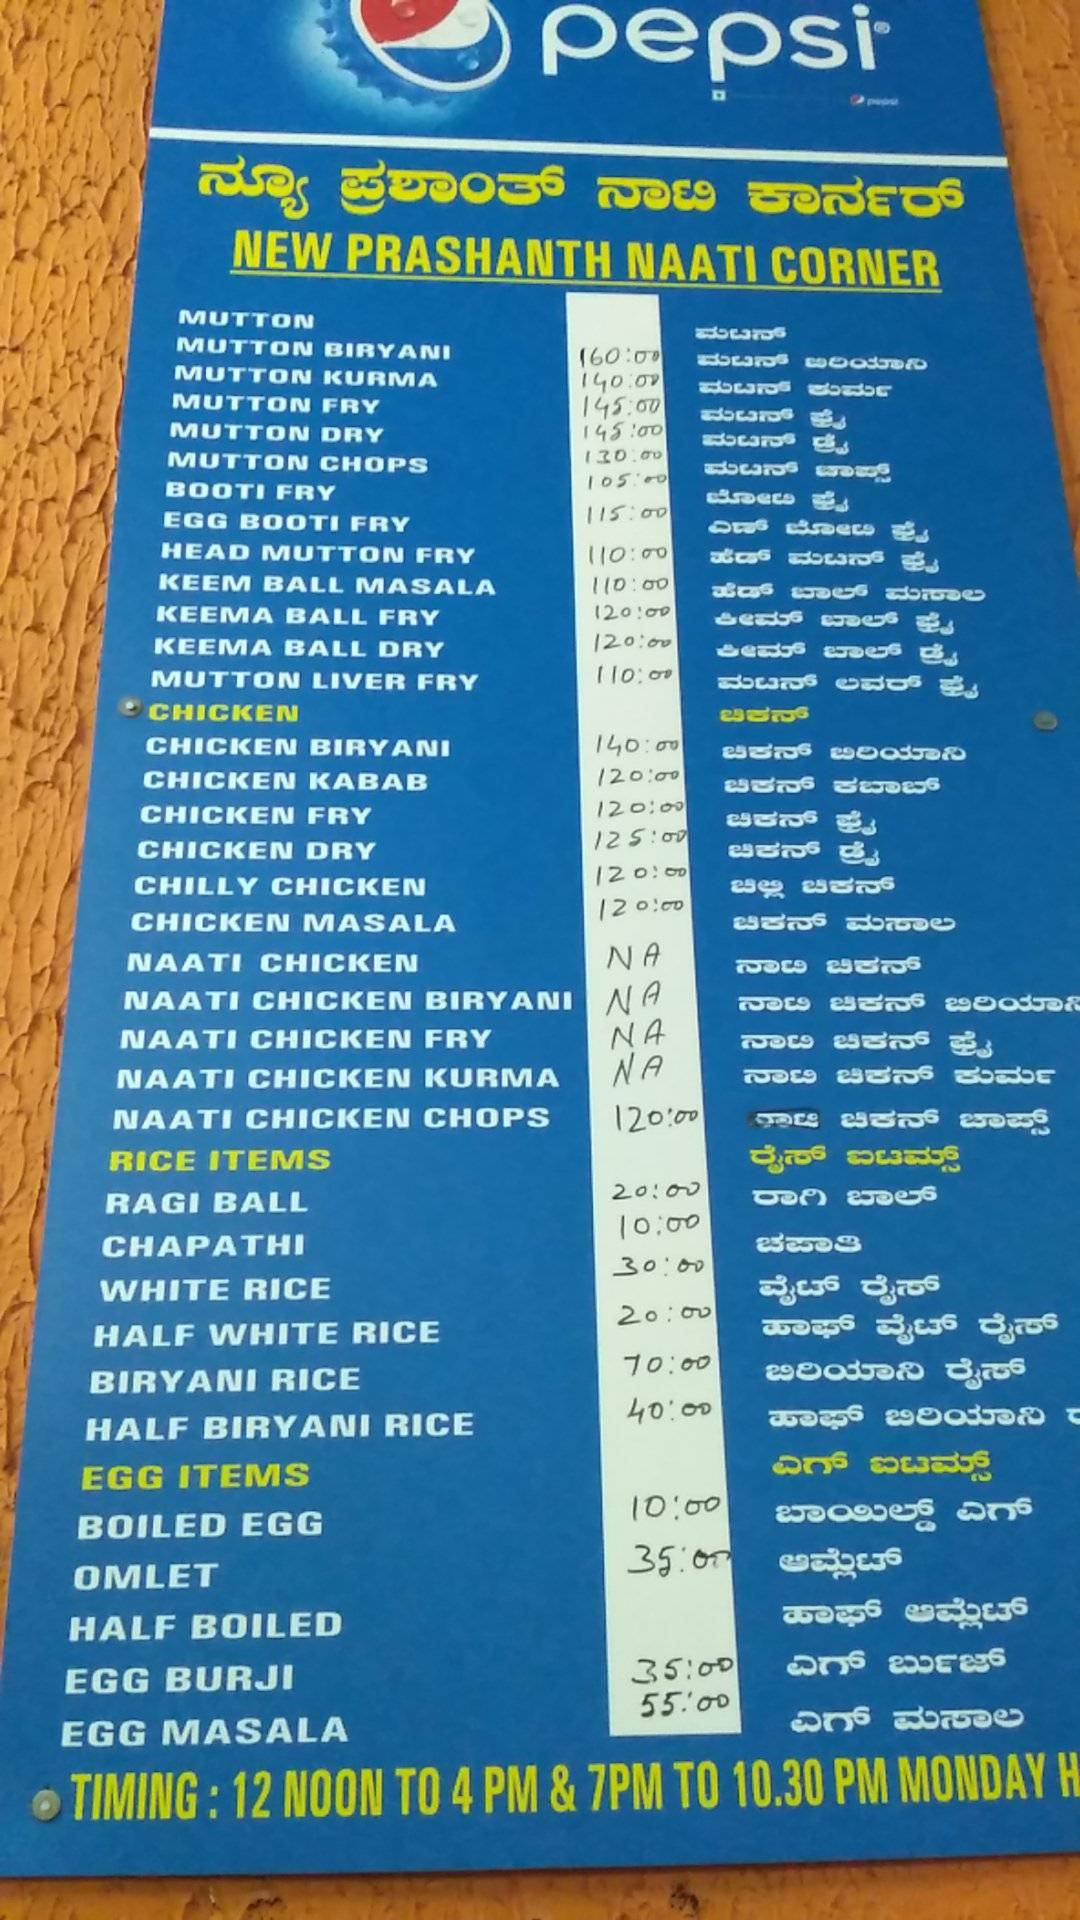 pepsi
pepsi
ನ್ಯೂ ಪ್ರಶಾಂತ್ ನಾಟಿ ಕಾರ್ನರ್
NEW PRASHANTH NAATI CORNER
MUTTON ಮಟನ್
MUTTON BIRYANI 160:00 ಮಟನ್ ಬಿರಿಯಾನಿ
MUTTON KURMA 140:00 ಮಟನ್ ಕುರ್ಮ
MUTTON FRY 145:00 ಮಟನ್ ಫ್ರೈ
MUTTON DRY 145:00 ಮಟನ್ ಡ್ರೈ
MUTTON CHOPS 130:00 ಮಟನ್ ಚಾಪ್ಸ್
BOOTI FRY 105:00 ಬೋಟಿ ಫ್ರೈ
EGG BOOTI FRY 115:00 ಎಗ್ ಬೋಟಿ ಫ್ರೈ
HEAD MUTTON FRY 110:00 ಹೆಡ್ ಮಟನ್ ಫ್ರೈ
KEEM BALL MASALA 110:00 ಹೆಡ್ ಬಾಲ್ ಮಸಾಲ
KEEMA BALL FRY 120:00 ಕೀಮ್ ಬಾಲ್ ಫ್ರೈ
KEEMA BALL DRY 120:00 ಕೀಮ್ ಬಾಲ್ ಡ್ರೈ
MUTTON LIVER FRY 110:00 ಮಟನ್ ಲವರ್ ಫ್ರೈ
CHICKEN ಚಿಕನ್
CHICKEN BIRYANI 140:00 ಚಿಕನ್ ಬಿರಿಯಾನಿ
CHICKEN KABAB 120:00 ಚಿಕನ್ ಕಬಾಬ್
CHICKEN FRY 120:00 ಚಿಕನ್ ಫ್ರೈ
CHICKEN DRY 125:00 ಚಿಕನ್ ಡ್ರೈ
CHILLY CHICKEN 120:00 ಚಿಲ್ಲಿ ಚಿಕನ್
CHICKEN MASALA 120:00 ಚಿಕನ್ ಮಸಾಲ
NAATI CHICKEN NA ನಾಟಿ ಚಿಕನ್
NAATI CHICKEN BIRYANI NA ನಾಟಿ ಚಿಕನ್ ಬಿರಿಯಾನಿ
NAATI CHICKEN FRY NA ನಾಟಿ ಚಿಕನ್ ಫ್ರೈ
NAATI CHICKEN KURMA NA ನಾಟಿ ಚಿಕನ್ ಕುರ್ಮ
NAATI CHICKEN CHOPS 120:00 ನಾಟಿ ಚಿಕನ್ ಚಾಪ್ಸ್
RICE ITEMS ರೈಸ್ ಐಟಮ್ಸ್
RAGI BALL 20:00 ರಾಗಿ ಬಾಲ್
CHAPATHI 10:00 ಚಪಾತಿ
WHITE RICE 30:00 ವೈಟ್ ರೈಸ್
HALF WHITE RICE 20:00 ಹಾಫ್ ವೈಟ್ ರೈಸ್
BIRYANI RICE 70:00 ಬಿರಿಯಾನಿ ರೈಸ್
HALF BIRYANI RICE 40:00 ಹಾಫ್ ಬಿರಿಯಾನಿ
EGG ITEMS ಎಗ್ ಐಟಮ್ಸ್
BOILED EGG 10:00 ಬಾಯಿಲ್ಡ್ ಎಗ್
OMLET 35:00 ಆಮ್ಲೆಟ್
HALF BOILED ಹಾಫ್ ಆಮ್ಲೆಟ್
EGG BURJI 35:00 ಎಗ್ ಬುರ್ಜಿ
EGG MASALA 55:00 ಎಗ್ ಮಸಾಲ
TIMING : 12 NOON TO 4 PM & 7PM TO 10.30 PM MONDAY H